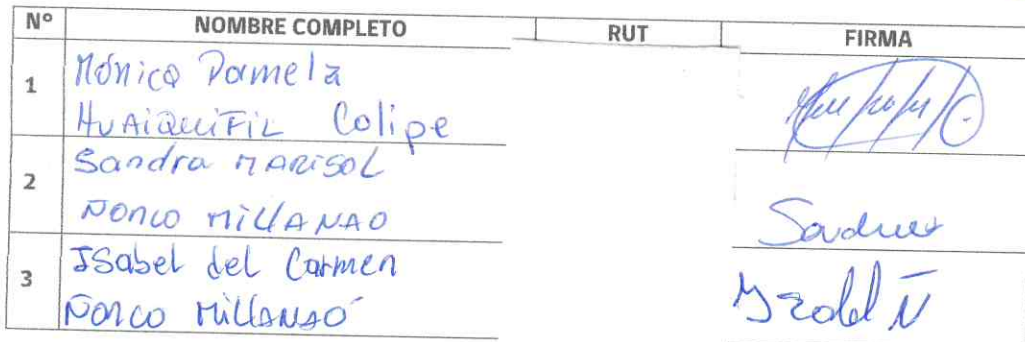 Nº NOMBRE COMPLETO RUT FIRMA
1 Mónica Pamela
Huaiquifil Colipe
2 Sandra Marisol
Ñonco Millanao
Sandra
3 Isabel del Carmen
Ñonco Millanaó